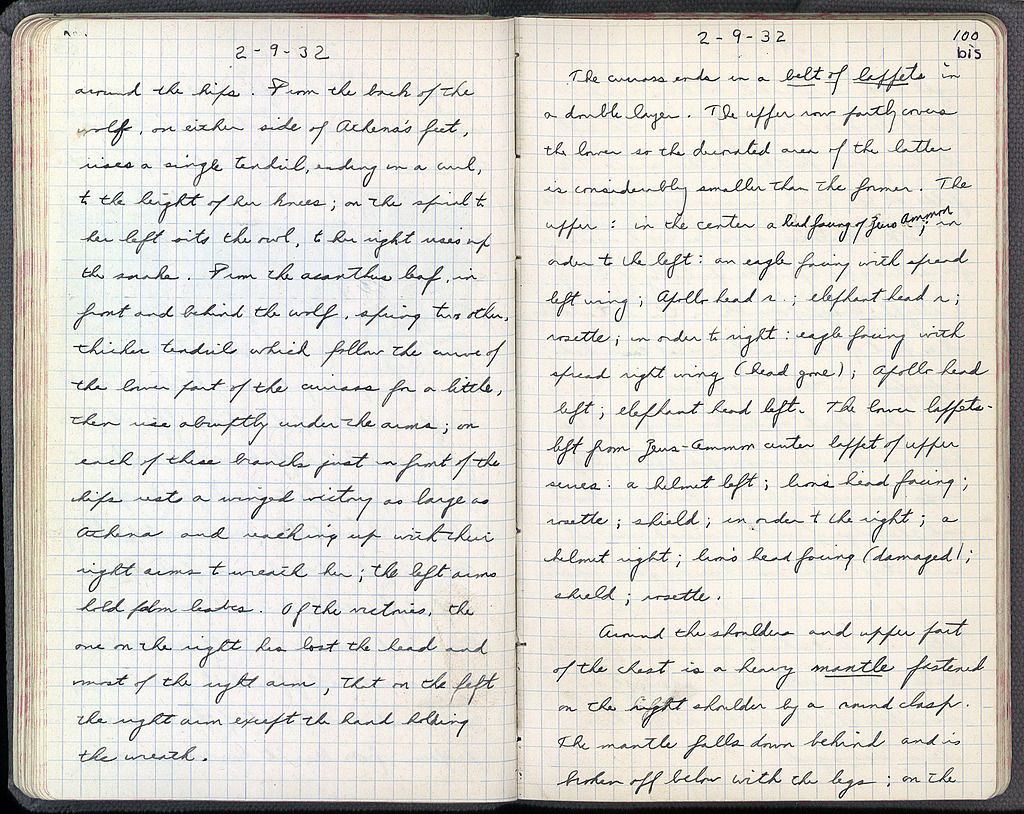 2-9-32
around the hips. From the back of the
wolf, on either side of Athena's feet,
rises a single tendril, ending in a curl,
to the height of her knees; on the spiral to
her left sits the owl, to her right rises up
the snake. From the acanthus leaf, in
front and behind the wolf, spring two other,
thicker tendrils which follow the curve of
the lower part of the cuirass for a little,
then rise abruptly under the arms; on
each of these branches just in front of the
hips rests a winged victory as large as
Athena and reaching up with their
right arms to wreath her; the left arms
hold palm leaves. Of the victories, the
one on the right has lost the head and
most of the right arm, that on the left
the right arm except the hand holding
the wreath.
2-9-32
100
bis
The cuirass ends in a belt of lappets in
a double layer. The upper row partly covers
the lower so the decorated area of the latter
is considerably smaller than the former. The
upper: in the center a head facing of Zeus Ammon; in
order to the left: an eagle facing with spread
left wing; Apollo head r.; elephant head r;
rosette; in order to right: eagle facing with
spread right wing (head gone); Apollo head
left; elephant head left. The lower lappets-
left from Zeus-Ammon center lappet of upper
series: a helmet left; lion's head facing;
rosette; shield; in order to the right; a
helmet right; lion's head facing (damaged);
shield; rosette.
Around the shoulders and upper part
of the chest is a heavy mantle fastened
on the right shoulder by a round clasp.
The mantle falls down behind and is
broken off below with the legs; on the